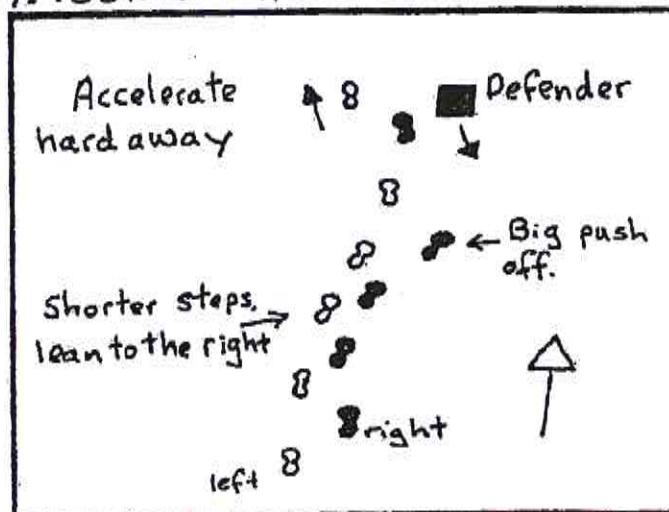 Accelerate
hard away
Defender
Big push
off.
Shorter steps,
lean to the right
right
left